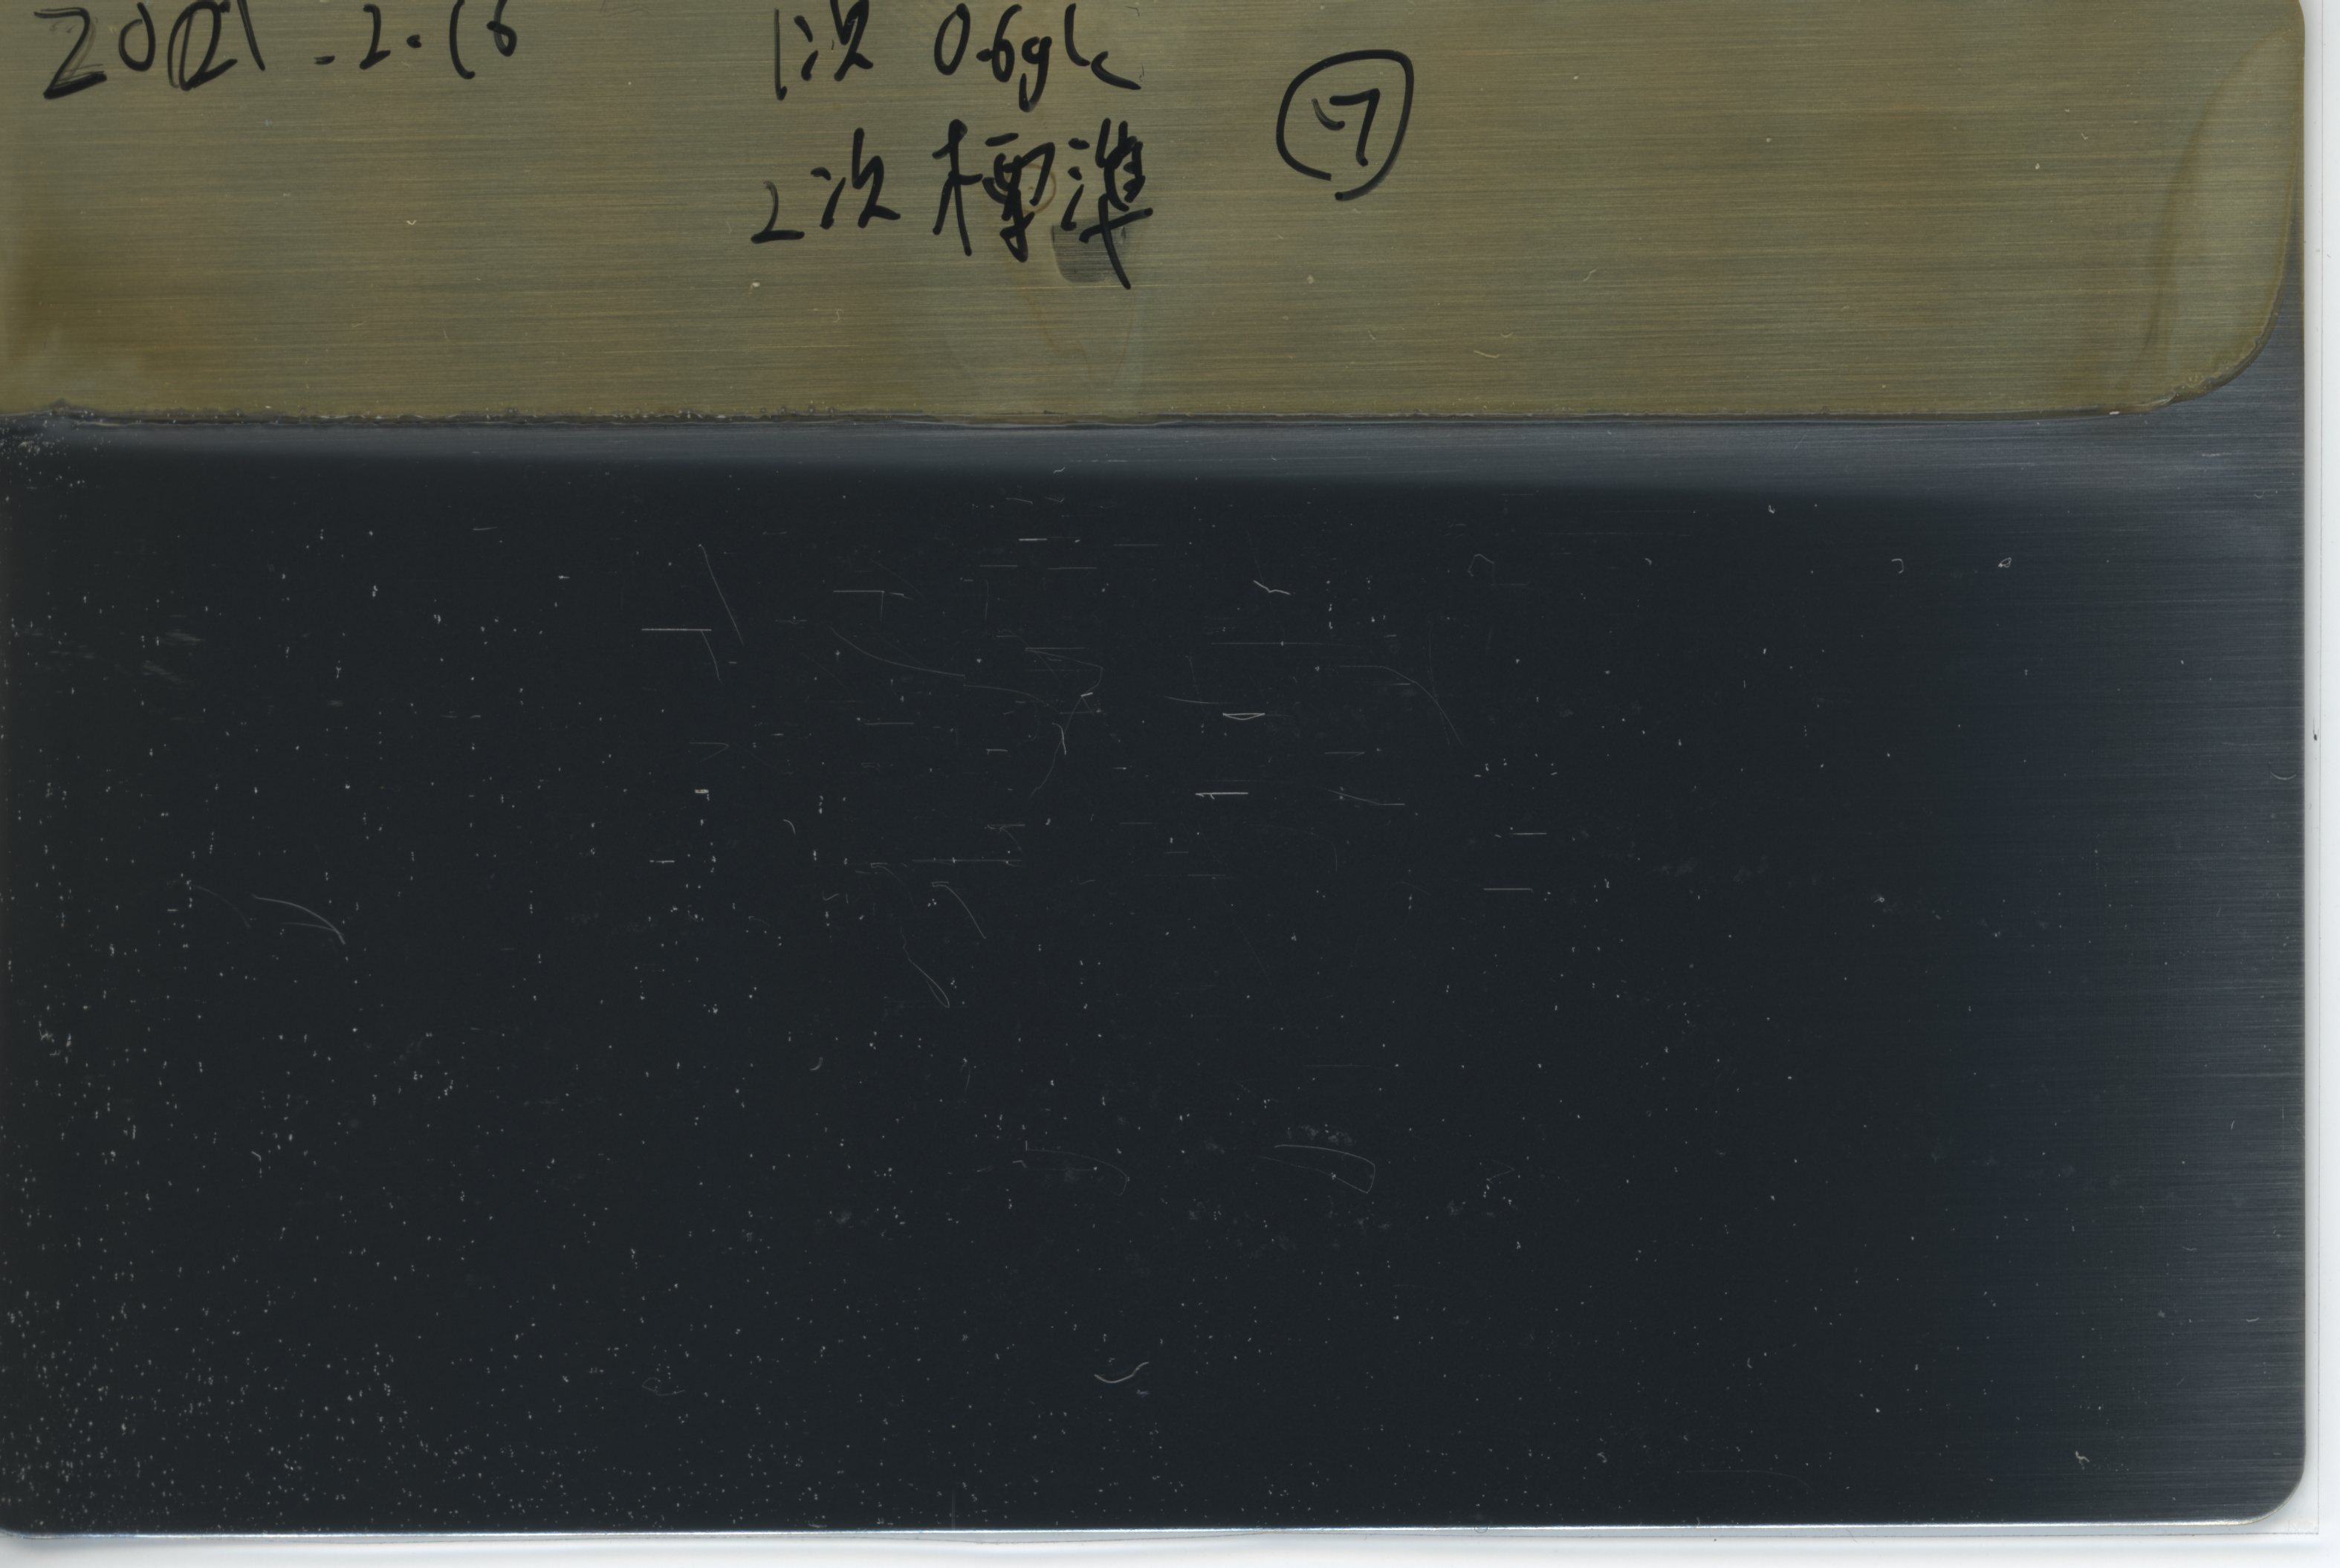 2021.2.16
1次 0.6g/L
2次 標準
⑦